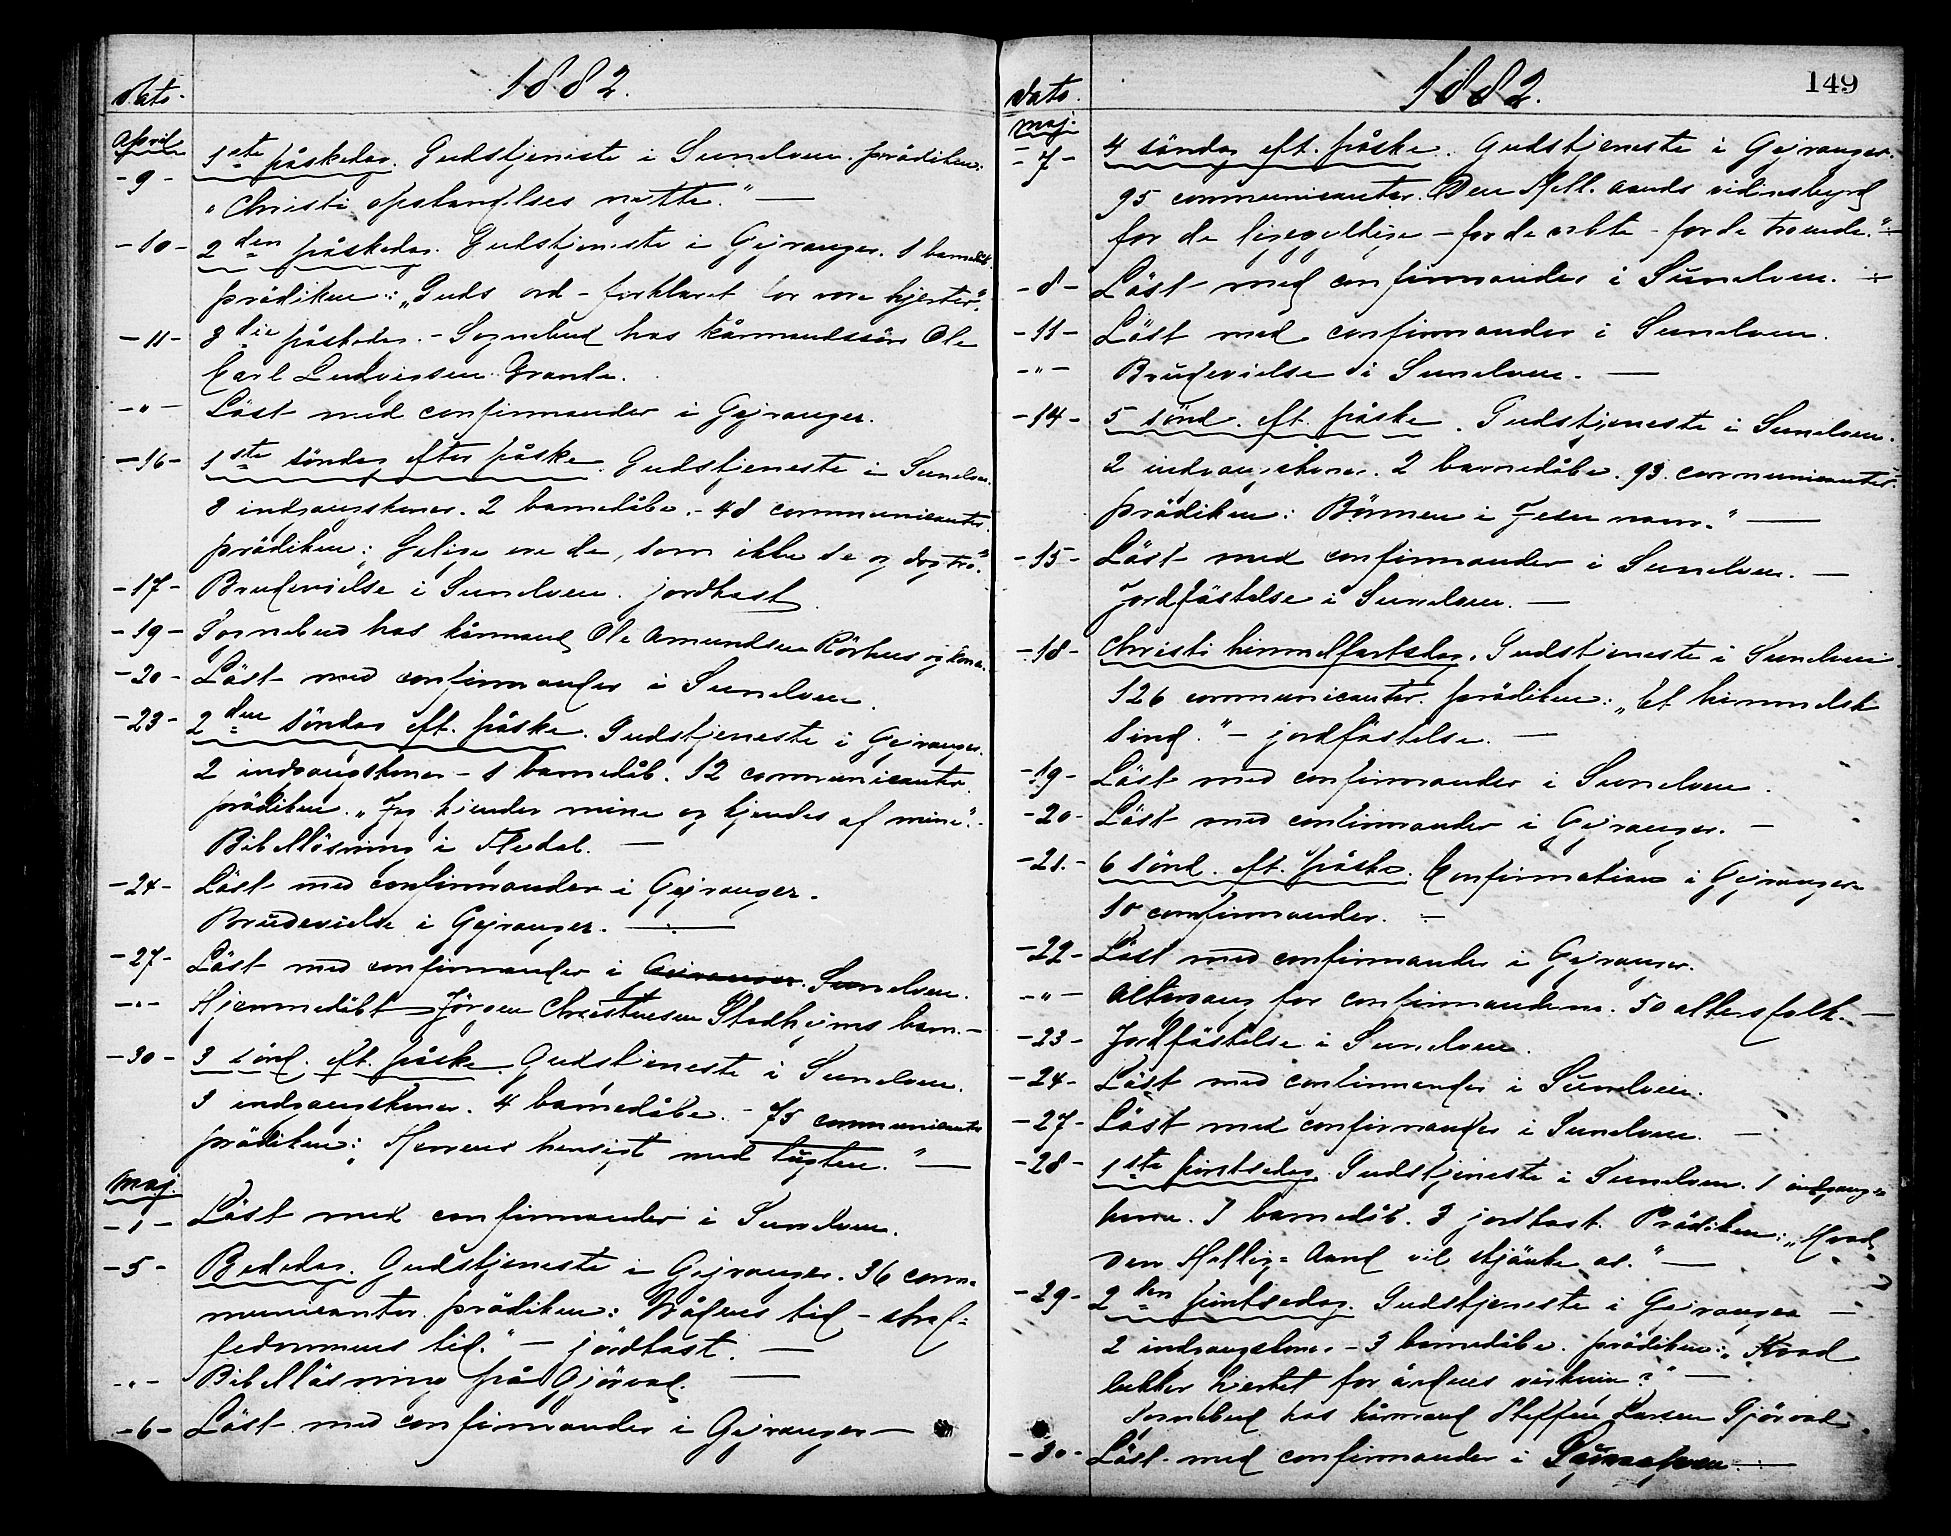 1882.
Dato.
April
-9- 1ste påskedag. Gudstjeneste i Sunelven. prädiken:
"Christi opstandelses nytte." —
-10- 2den påskedag. Gudstjeneste i Gejranger. 1 barnedåb.
prädiken: "Guds ord - forklaret for vore hjerter".
-11- 3die påskedag. - Sognebud hos kårmandssön Ole
Carl Ludvigsen Grande.
-"- Läst med confirmander i Gejranger.
-16- 1ste söndag efter påske. Gudstjeneste i Sunelven.
3 indgangskoner. 2 barnedåbe. - 48 communicanter.
prädiken: Salige ere de, som ikke se og dog tro".
-17- Brudevielse i Sunelven. jordkast.
-19- Sognebud hos kårmand Ole Amundsen Rörhus og kone.
-20- Läst med confirmander i Sunelven.
-23- 2den söndag eft. påske. Gudstjeneste i Gejranger.
2 indgangskoner - 1 barnedåb. 12 communicanter.
prädiken. "Jeg kjender mine og kjendes af mine".-
Bibelläsning i Fledal. —
-24- Läst med confirmander i Gejranger.
Brudevielse i Gejranger. —
-27- Läst med confirmander i Gejranger. Sunelven.
-"- Hjemmedöbt Jörgen Christensen Stadhejms barn. -
-30- 3 sönd. eft. påske. Gudstjeneste i Sunelven.
3 indgangskoner. 4 barnedåbe. - 75 communicanter
prädiken: "Herrens hensigt med tugten." —
Maj.
-1- Läst med confirmander i Sunelven.
-5- Bededag. Gudstjeneste i Gejranger. 36 com=
municanter. prädiken: Nådens tid - straf=
fedommens tid." - jordkast. —
-"- Bibelläsning på Gjörvad. —
-6- Läst med confirmander i Gejranger —
1882.
149
Dato.
Maj.
-7- 4 söndag eft. påske. Gudstjeneste i Gejranger.
95 communicanter. Den Hell. aands vidnesbyrd
for de ligegyldige - for de vakte - for de troende." -
-8- Läst med confirmander i Sunelven. -
-11- Läst med confirmander i Sunelven.
-"- Brudevielse i Sunelven. —
-14- 5 sönd. eft. påske. Gudstjeneste i Sunelven.
2 indgangskoner. 2 barnedåbe. 93 communicanter.
prädiken: Bönnen i Jesu navn." —
-15- Läst med confirmander i Sunelven. —
Jordfästelse i Sunelven. —
-18- Christi himmelfartsdag. Gudstjeneste i Sunelven.
126 communicanter. prädiken: "Et himmelsk
sind." - jordfästelse. —
-19- Läst med confirmander i Sunelven.
-20- Läst med confirmander i Gejranger. —
-21- 6 sönd. eft. påske. Confirmation i Gejranger
10 confirmander. -
-22- Läst med confirmander i Gejranger.
-"- Altergang for confirmanderne. 50 altersfolk. —
-23- Jordfästelse i Sunelven.
-24- Läst med confirmander i Sunelven.
-27- Läst med confirmander i Sunelven. —
-28- 1ste pintsedag. Gudstjeneste i Sunelven. 1 indgangs=
kone. 1 barnedåb. 3 jordkast. Prädiken: "Hvad
den Hellig=Aand vil skjänke os." —
-29- 2den pintsedag. Gudstjeneste i Gejranger —
2 indgangskoner - 3 barnedåbe. prädiken: "Hvad
lukker hjertet for åndens virken?" —
Sognebud hos kårmand Steffen Larsen Gjörvad.
-30- Läst med confirmander i Sunelven. —